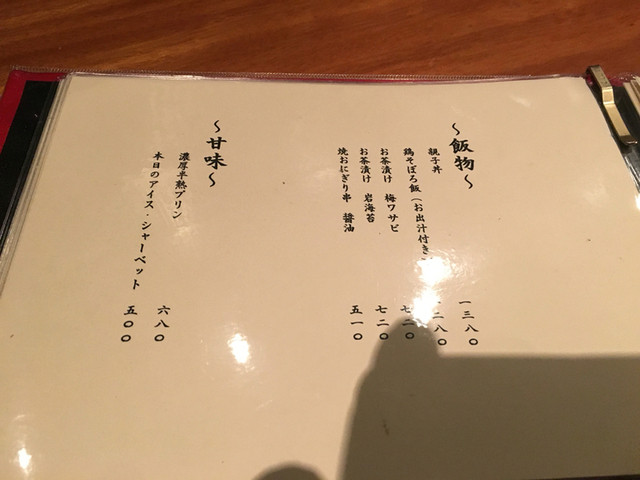 ～飯物～
親子丼 一三八〇
鶏そぼろ飯（お出汁付き 一二八〇
お茶漬け 梅ワサビ 七二〇
お茶漬け 岩海苔 七二〇
焼おにぎり串 醤油 五一〇
～甘味～
濃厚半熟プリン 六八〇
本日のアイス・シャーベット 五〇〇